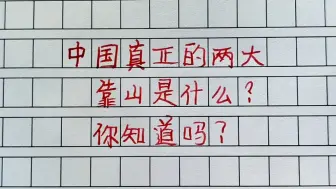 中国真正的两大
靠山是什么?
你知道吗?